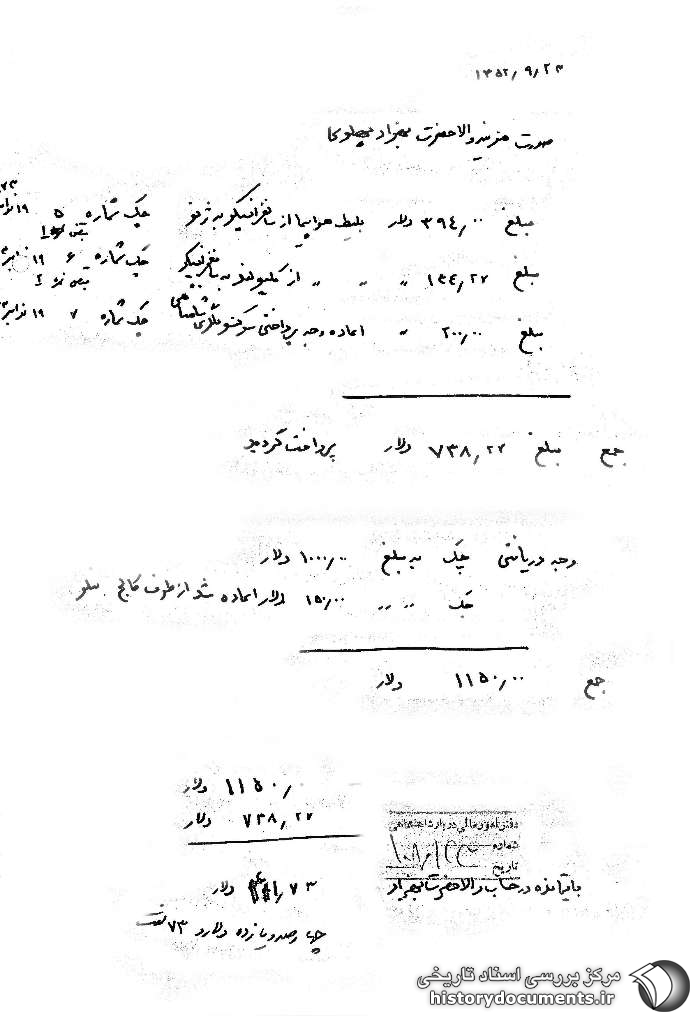 ۱۳۵۲/۹/۲۳
صورت هزینه والاحضرت بهزاد پهلوی
مبلغ ۳۹۴/۰۰ دلار بلیط هواپیما از سانفرانسیسکو به ژنو چک شماره ۵ ۱۹ نوامبر ۷۳
مبلغ ۱۴۴/۲۷ " " " از کلیولند به سانفرانسیسکو چک شماره ۶ ۱۹ نوامبر
مبلغ ۲۰۰/۰۰ " اعاده وجه پرداختی سرکنسولگری شاهنشاهی چک شماره ۷ ۱۹ نوامبر
جمع مبلغ ۷۳۸/۲۷ دلار پرداخت گردید
وجه دریافتی چک به مبلغ ۱۰۰۰/۰۰ دلار
چک " " ۱۵۰/۰۰ دلار اعاده شد از طرف کالج
جمع ۱۱۵۰/۰۰ دلار
۱۱۵۰/۰ دلار
۷۳۸/۲۷ دلار
دفتر امور مالی دربار شاهنشاهی
شماره
تاریخ
۷۳ دلار
باقیمانده در حساب والاحضرت بهزاد
چهارصد و یازده دلار و ۷۳ سنت
مرکز بررسی اسناد تاریخی
historydocuments.ir